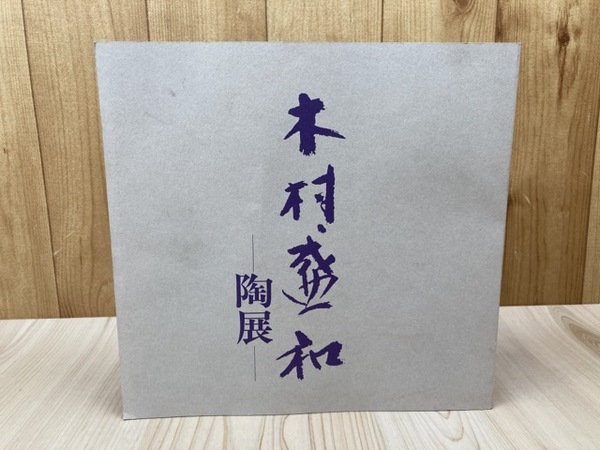 木村盛和
陶展